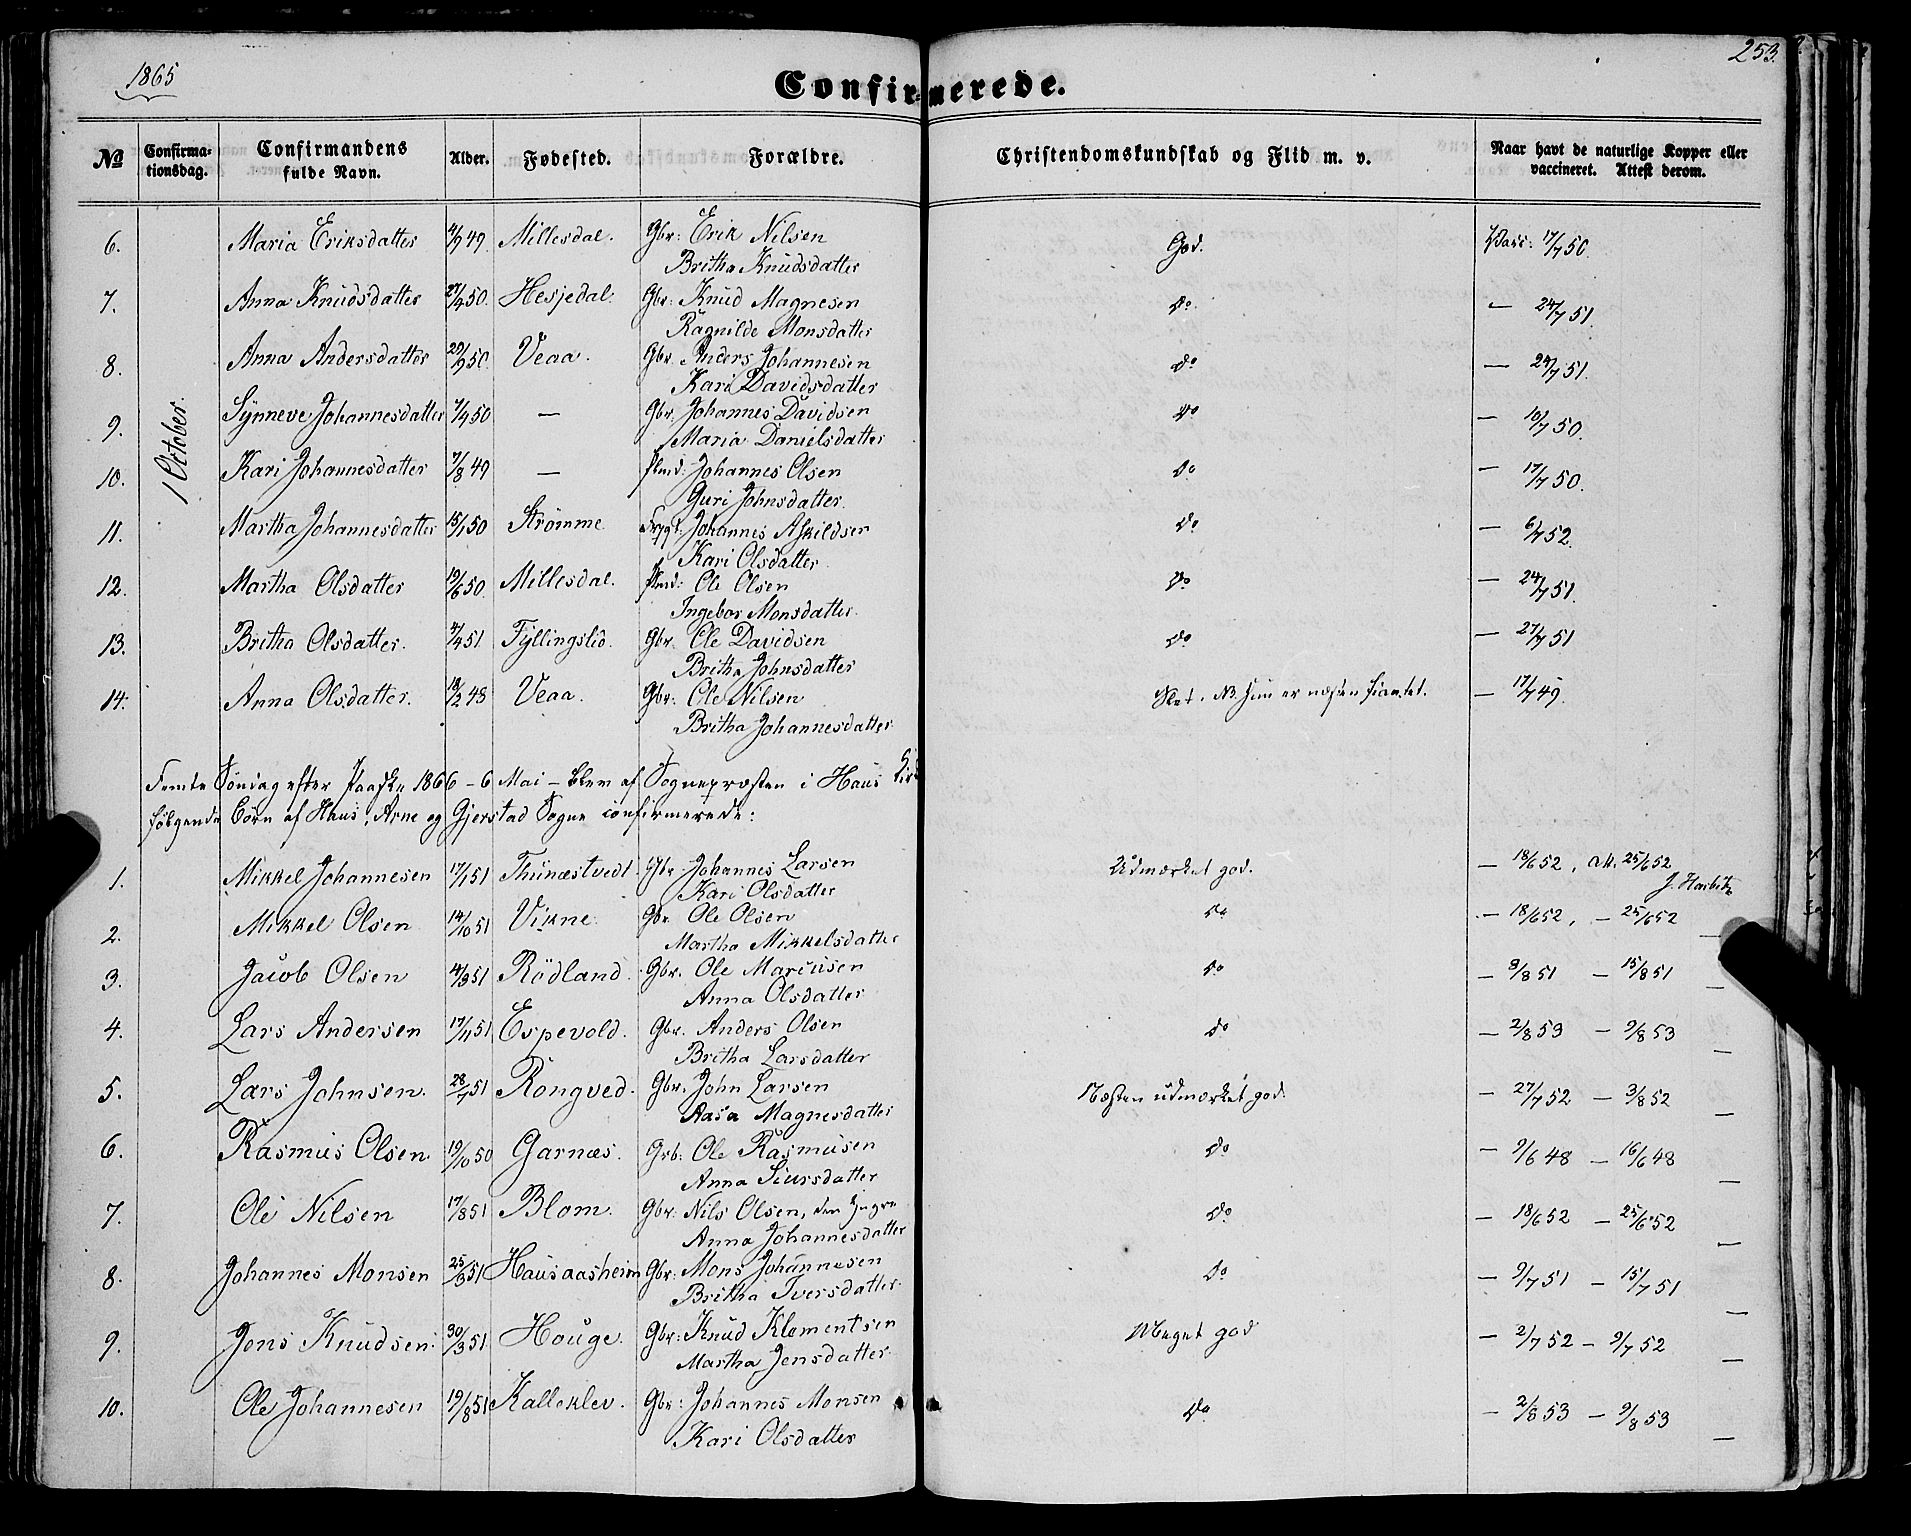 1865
253.
Confirmerede.
No
Confirmationsdag.
Confirmandens fulde Navn.
Alder.
Fødested.
Forældre.
Christendomskundskab og Flid m. v.
Naar havt de naturlige Kopper eller vaccineret. Attest derom.
1 October.
6. Maria Eriksdatter 4/9 49. Millesdal. Gbr: Erik Nilsen God. Vacc: 17/7 50.
Britha Knudsdatter
7. Anna Knudsdatter 27/4 50. Hesjedal. Gbr: Knud Magnesen Do. — 24/7 51.
Ragnilde Monsdatter
8. Anna Andersdatter 29/9 50. Veaa. Gbr. Anders Johannesen Do — 24/7 51.
Kari Davidsdatter
9. Synneve Johannesdatter 7/4 50 — Gbr. Johannes Davidsen Do — 10/7 50.
Maria Danielsdatter
10. Kari Johannesdatter 7/8 49 — Plmd: Johannes Olsen Do — 17/7 50.
Guri Johnsdatter.
11. Martha Johannesdatter 15/1 50 Strømme Johannes Askildsen Do — 6/7 52.
Kari Olsdatter.
12. Martha Olsdatter 19/6 50 Millesdal. Plmd: Ole Olsen Do — 24/7 51.
Ingebor Monsdatter.
13. Britha Olsdatter. 4/4 51 Fyllingslid. Gbr. Ole Davidsen Do — 27/7 51
Britha Johnsdatter
14. Anna Olsdatter. 18/2 48 Veaa. Gbr: Ole Nilsen Slet. NB. hun er næsten fiantet. — 17/7 49.
Britha Johannesdatter
Femte Søndag efter Paaske 1866 – 6 Mai – blev af Sognepræsten i Haus
følgende Børn af Haus, Arne og Gjerstad Sogne confirmerede:
1. Mikkel Johannesen 17/1 51 Thunæstvedt. Gbr: Johannes Larsen Udmærket god. — 18/6 52, att. 25/6 52
Kari Olsdatter J. Harbitz
2. Mikkel Olsen 14/10 51 Vikne. Gbr. Ole Olsen do — 18/6 52, — 25/6 52 —
Martha Mikkelsdatter
3. Jacob Olsen 4/3 51 Rödland. Gbr. Ole Marcusen do — 8/8 51 — 15/8 51 —
Anna Olsdatter
4. Lars Andersen 17/4 51 Espevold. Gbr. Anders Olsen do — 2/8 53 — 9/8 53 —
Britha Larsdatter
5. Lars Johnsen. 28/7 51 Rongved. Gbr. John Larsen Næsten udmærket god. — 27/7 52 — 3/8 52 —
Aasa Magnesdatter
6. Rasmus Olsen. 19/10 50 Garnæs. Grb: Ole Rasmusen Do — 9/6 48 — 16/6 48 —
Anna Siursdatter
7. Ole Nilsen 17/8 51 Blom. Gbr: Nils Olsen, den yngre Do — 18/6 52 — 25/6 52 —
Anna Johannesdatter
8. Johannes Monsen 25/3 51 Hausaasheim Gbr: Mons Johannesen Do — 9/7 51 — 15/7 51 —
Britha Iversdatter
9. Jens Knudsen. 30/3 51 Houge. Gbr: Knud Klementsen Meget god — 2/7 52 — 9/7 52 —
Martha Jensdatter.
10. Ole Johannesen 19/8 51 Kalleklev. Gbr: Johannes Monsen Do — 2/8 53 — 9/8 53 —
Kari Olsdatter